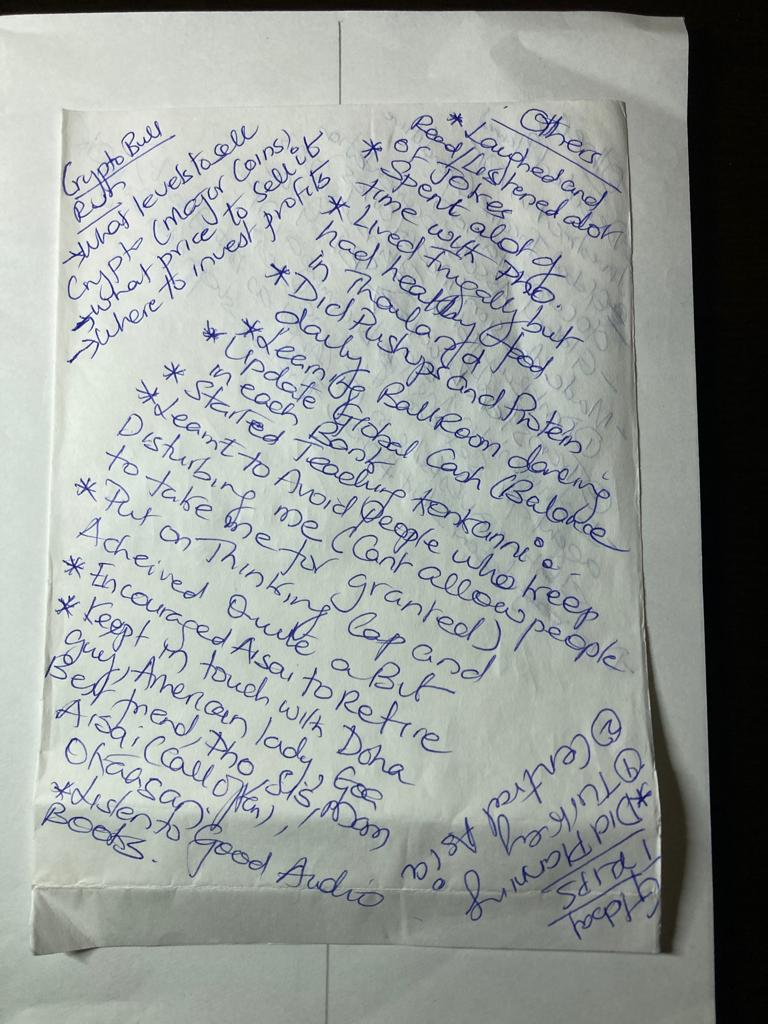 Crypto Bull
Run
→ What levels to sell
Crypto (major coins).
→ What price to sell it
→ Where to invest profits
Others
* Laughed and
Read/Listened alot
of Jokes
* Spent alot of
time with Pho.
* Lived frugally but
had healthy food
in Thailand
* Did Pushups and Protein
daily
* Learning BallRoom dancing
* Update Global Cash (Balance
in each Bank
* Started Teaching
* Learnt to Avoid people who keep
Disturbing me (Cant allow people
to take me for granted)
* Put on Thinking Cap and
Acheived Quite a Bit
* Encouraged Aisai to Retire
* Keept in touch with Doha
guy, American lady, Goa
Best friend, Pho, Sis, Mom,
Aisai (call often),
Okaasan.
* Listen to Good Audio
Books.
Global
TRIPS
* Did Planning
① Turkey
② Central Asia